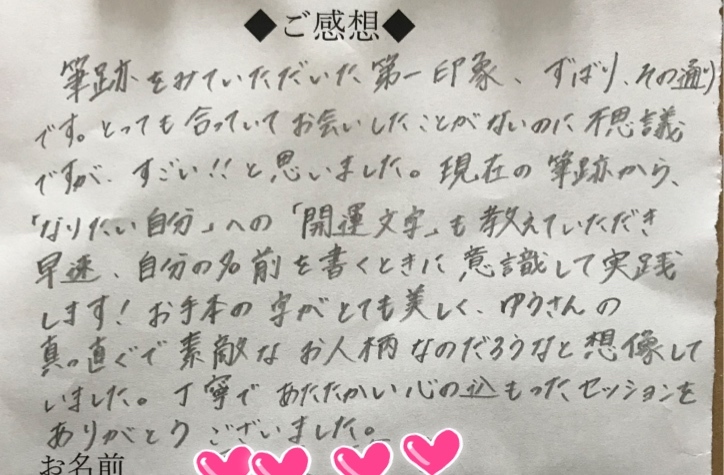 ◆ご感想◆
筆跡をみていただいた第一印象、ずばり、その通り
です。とっても合っていてお会いしたことがないのに不思議
ですが、すごい!!と思いました。現在の筆跡から、
「なりたい自分」への「開運文字」も教えていただき
早速、自分の名前を書くときに意識して実践
します！お手本の字がとても美しく、ゆうさんの
真っ直ぐで素敵なお人柄なのだろうなと想像して
いました。丁寧であたたかい心の込もったセッションを
ありがとうございました。
お名前